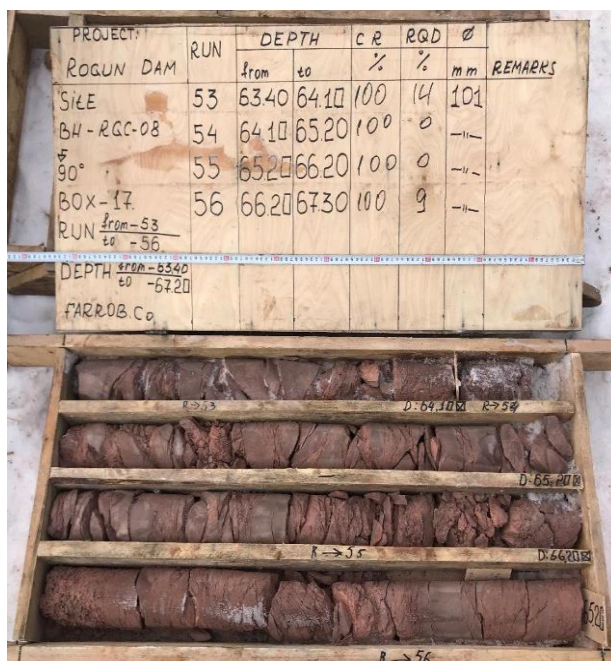 PROJECT: RUN DEPTH CR RQD Ø
ROGUN DAM from to % % mm REMARKS
SITE 53 63.40 64.10 100 14 101
BH-RGC-08 54 64.10 65.20 100 0 -"-
90° 55 65.20 66.20 100 0 -"-
BOX-17 56 66.20 67.30 100 9 -"-
RUN from-53
to -56
DEPTH from-63.40
to -67.20
FARROB.Co
R→53 D:64.10 R→54
D:65.20
R→55 D:66.20
R→56